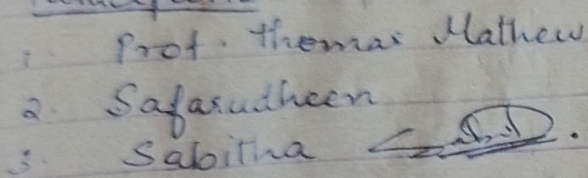 1. Prof. Thomas Mathew
2. Safarudheen
3. Sabitha